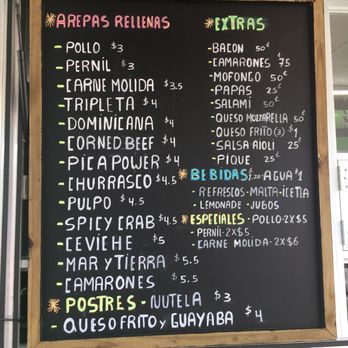 *AREPAS RELLENAS
- POLLO $3
- PERNIL $3
- CARNE MOLIDA $3.5
- TRIPLETA $4
- DOMINICANA $4
- CORNED BEEF $4
- PICA POWER $4
- CHURRASCO $4.5
- PULPO $4.5
- SPICY CRAB $4.5
- CEVICHE $5
- MAR Y TIERRA $5.5
- CAMARONES $5.5
*POSTRES - NUTELA $3
- QUESO FRITO y GUAYABA $4
*EXTRAS
- BACON 50¢
- CAMARONES 75
- MOFONGO 50¢
- PAPAS 25¢
- SALAMI 50¢
- QUESO MOZZARELLA 50¢
- QUESO FRITO (3) $1
- SALSA AIOLI 25¢
- PIQUE 25¢
*BEBIDAS $1.25 - AGUA $1
- REFRESCOS - MALTA - ICETEA
- LEMONADE - JUGOS
*ESPECIALES - POLLO - 2X$5
- PERNIL - 2X$5
- CARNE MOLIDA - 2X$6